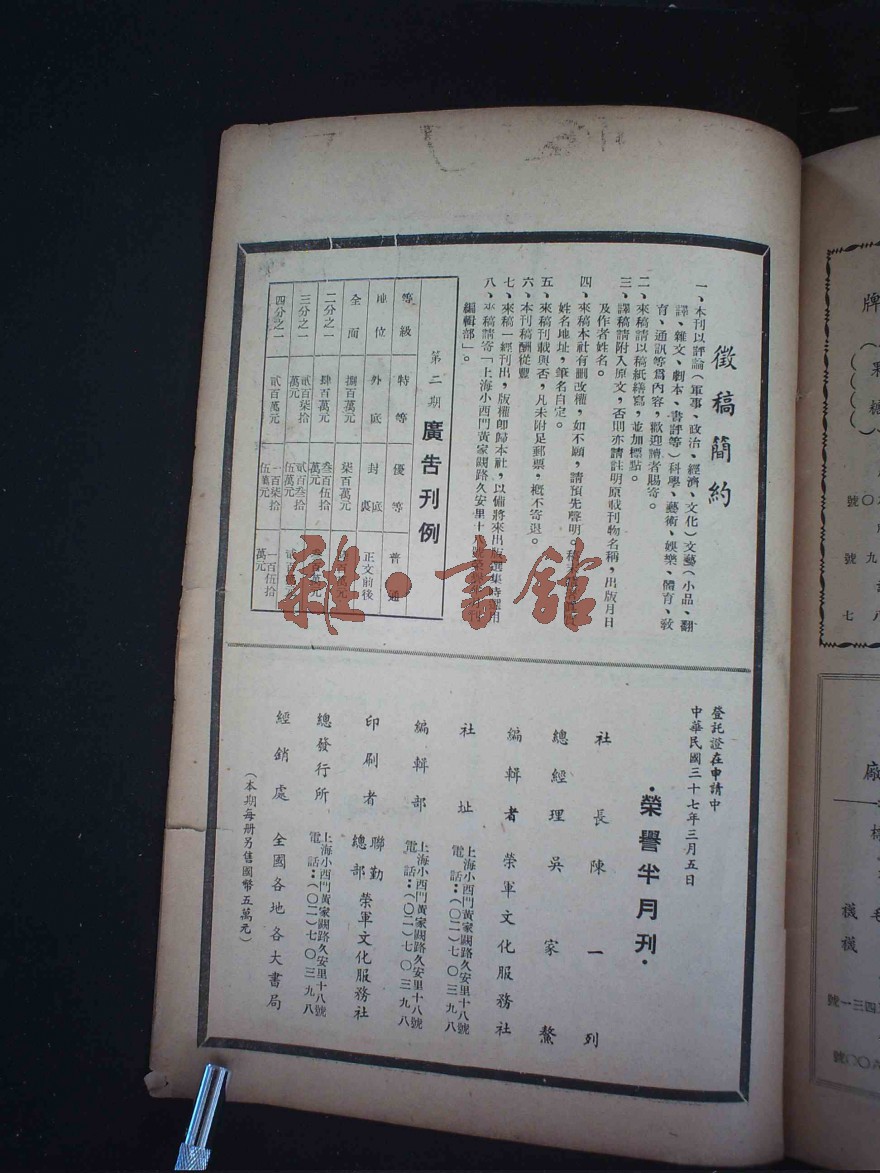 徵稿簡約
一、本刊以評論(軍事、政治、經濟、文化)文藝(小品、翻
譯、雜文、劇本、書評等)科學、藝術、娛樂、體育、敎
育、通訊等爲內容,歡迎讀者賜寄。
二、來稿請以稿紙繕寫,並加標點。
三、譯稿請附入原文,否則亦請註明原載刊物名稱,出版月日
及作者姓名。
四、來稿本社有刪改權,如不願,請預先聲明。
姓名地址,筆名自定。
五、來稿刊載與否,凡未附足郵票,概不寄退。
六、本刊稿酬從豐
七、來稿一經刊出,版權卽歸本社,以備將來出版選集時運用
八、來稿請寄「上海小西門黃家闕路久安里十八號
編輯部」。
第二期 廣告刊例
等級 特等 優等 普通
地位 外底 封底裏 正文前後
全面 捌百萬元 柒百萬元 百萬元
二分之一 肆百萬元 叁百伍拾萬元 百萬元
三分之一 貳百柒拾萬元 貳百叁拾伍萬元 貳百
四分之一 貳百萬元 一百柒拾伍萬元 一百伍拾萬元
雜·書館
登託證在申請中
中華民國三十七年三月五日
·榮譽半月刊·
社長陳一列
總經理吳家鰲
編輯者榮軍文化服務社
社址 上海小西門黃家闕路久安里十八號
電話:(〇二)七〇三九八
編輯部 上海小西門黃家闕路久安里十八號
電話:(〇二)七〇三九八
印刷者 聯勤總部榮軍文化服務社
總發行所 上海小西門黃家闕路久安里十八號
電話:(〇二)七〇三九八
經銷處 全國各地各大書局
(本期每册另售國幣五萬元)
牌
號
號
七
八
九
廠
毛
襪
襪
號一三四
號〇〇六